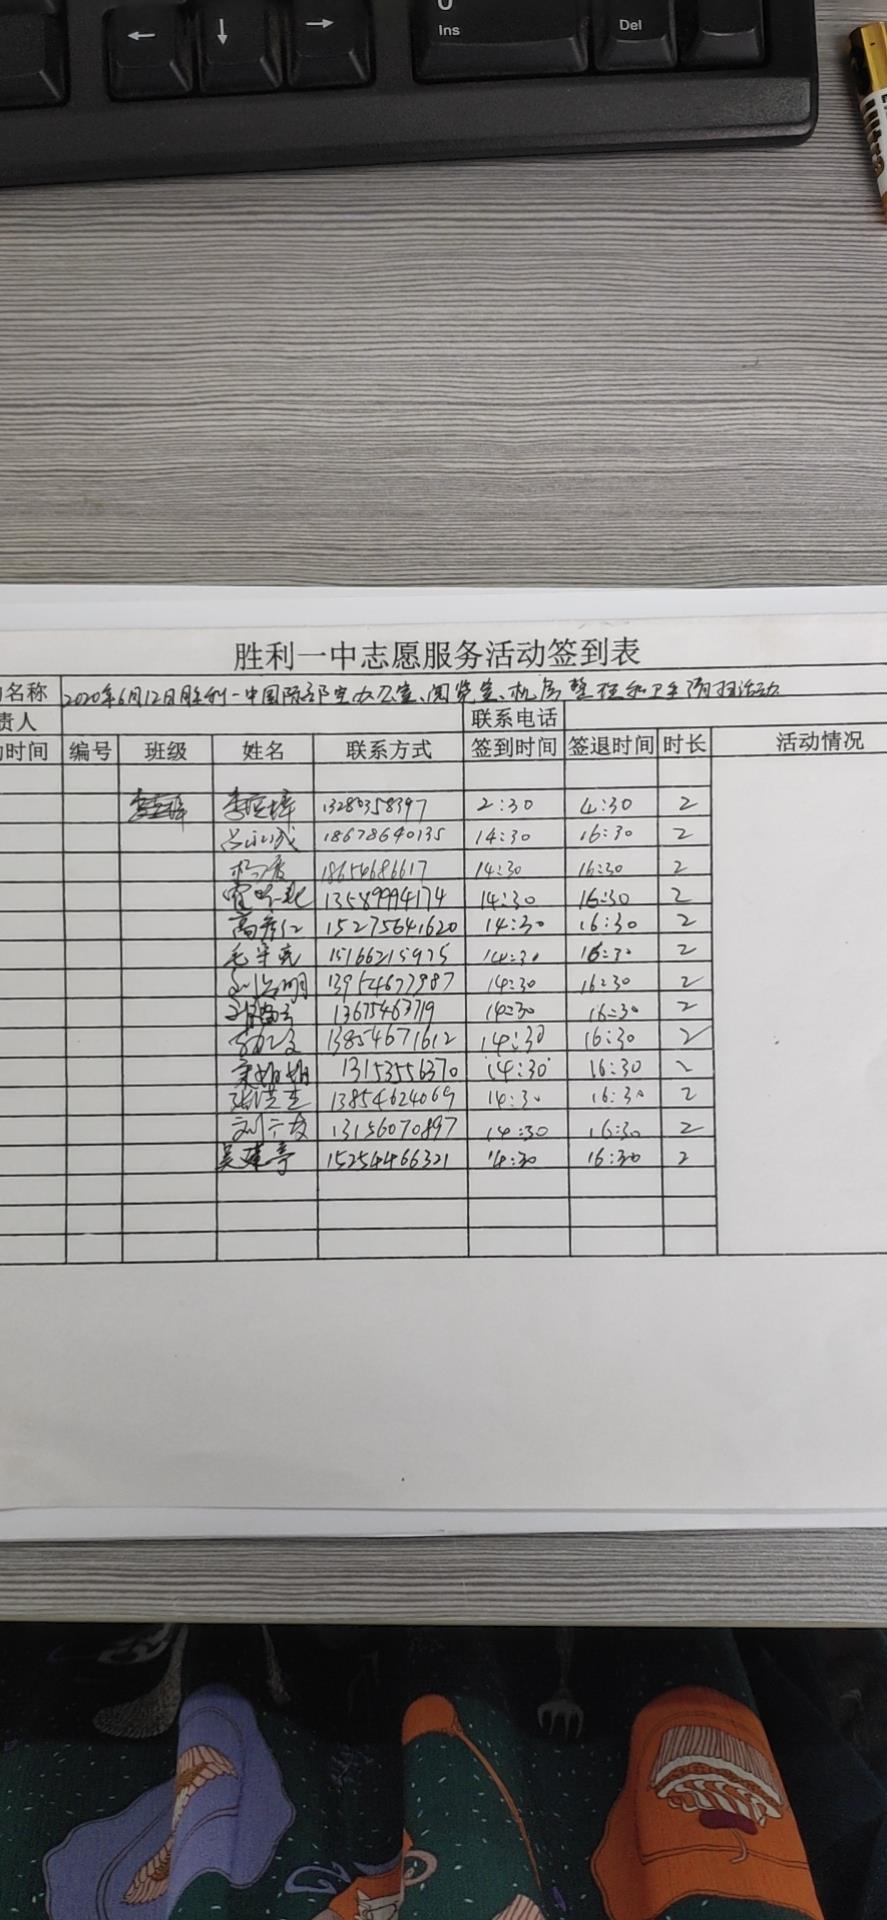 0
Ins
Del
← ↓ →
胜利一中志愿服务活动签到表
名称 2020年6月12日胜利一中国际部室办公室、阅览室、机房整理和卫生清扫活动
责人 联系电话
时间 编号 班级 姓名 联系方式 签到时间 签退时间 时长 活动情况
13280358397 2:30 4:30 2
18678640135 14:30 16:30 2
18654686617 14:30 16:30 2
13589994174 14:30 16:30 2
高秀仁 15275641620 14:30 16:30 2
15166215975 14:30 16:30 2
13954677987 14:30 16:30 2
14:30 16:30 2
13854671612 14:30 16:30 2
14:30 16:30 2
13854624069 14:30 16:30 2
13156070897 14:30 16:30 2
吴建亭 15254466321 14:30 16:30 2